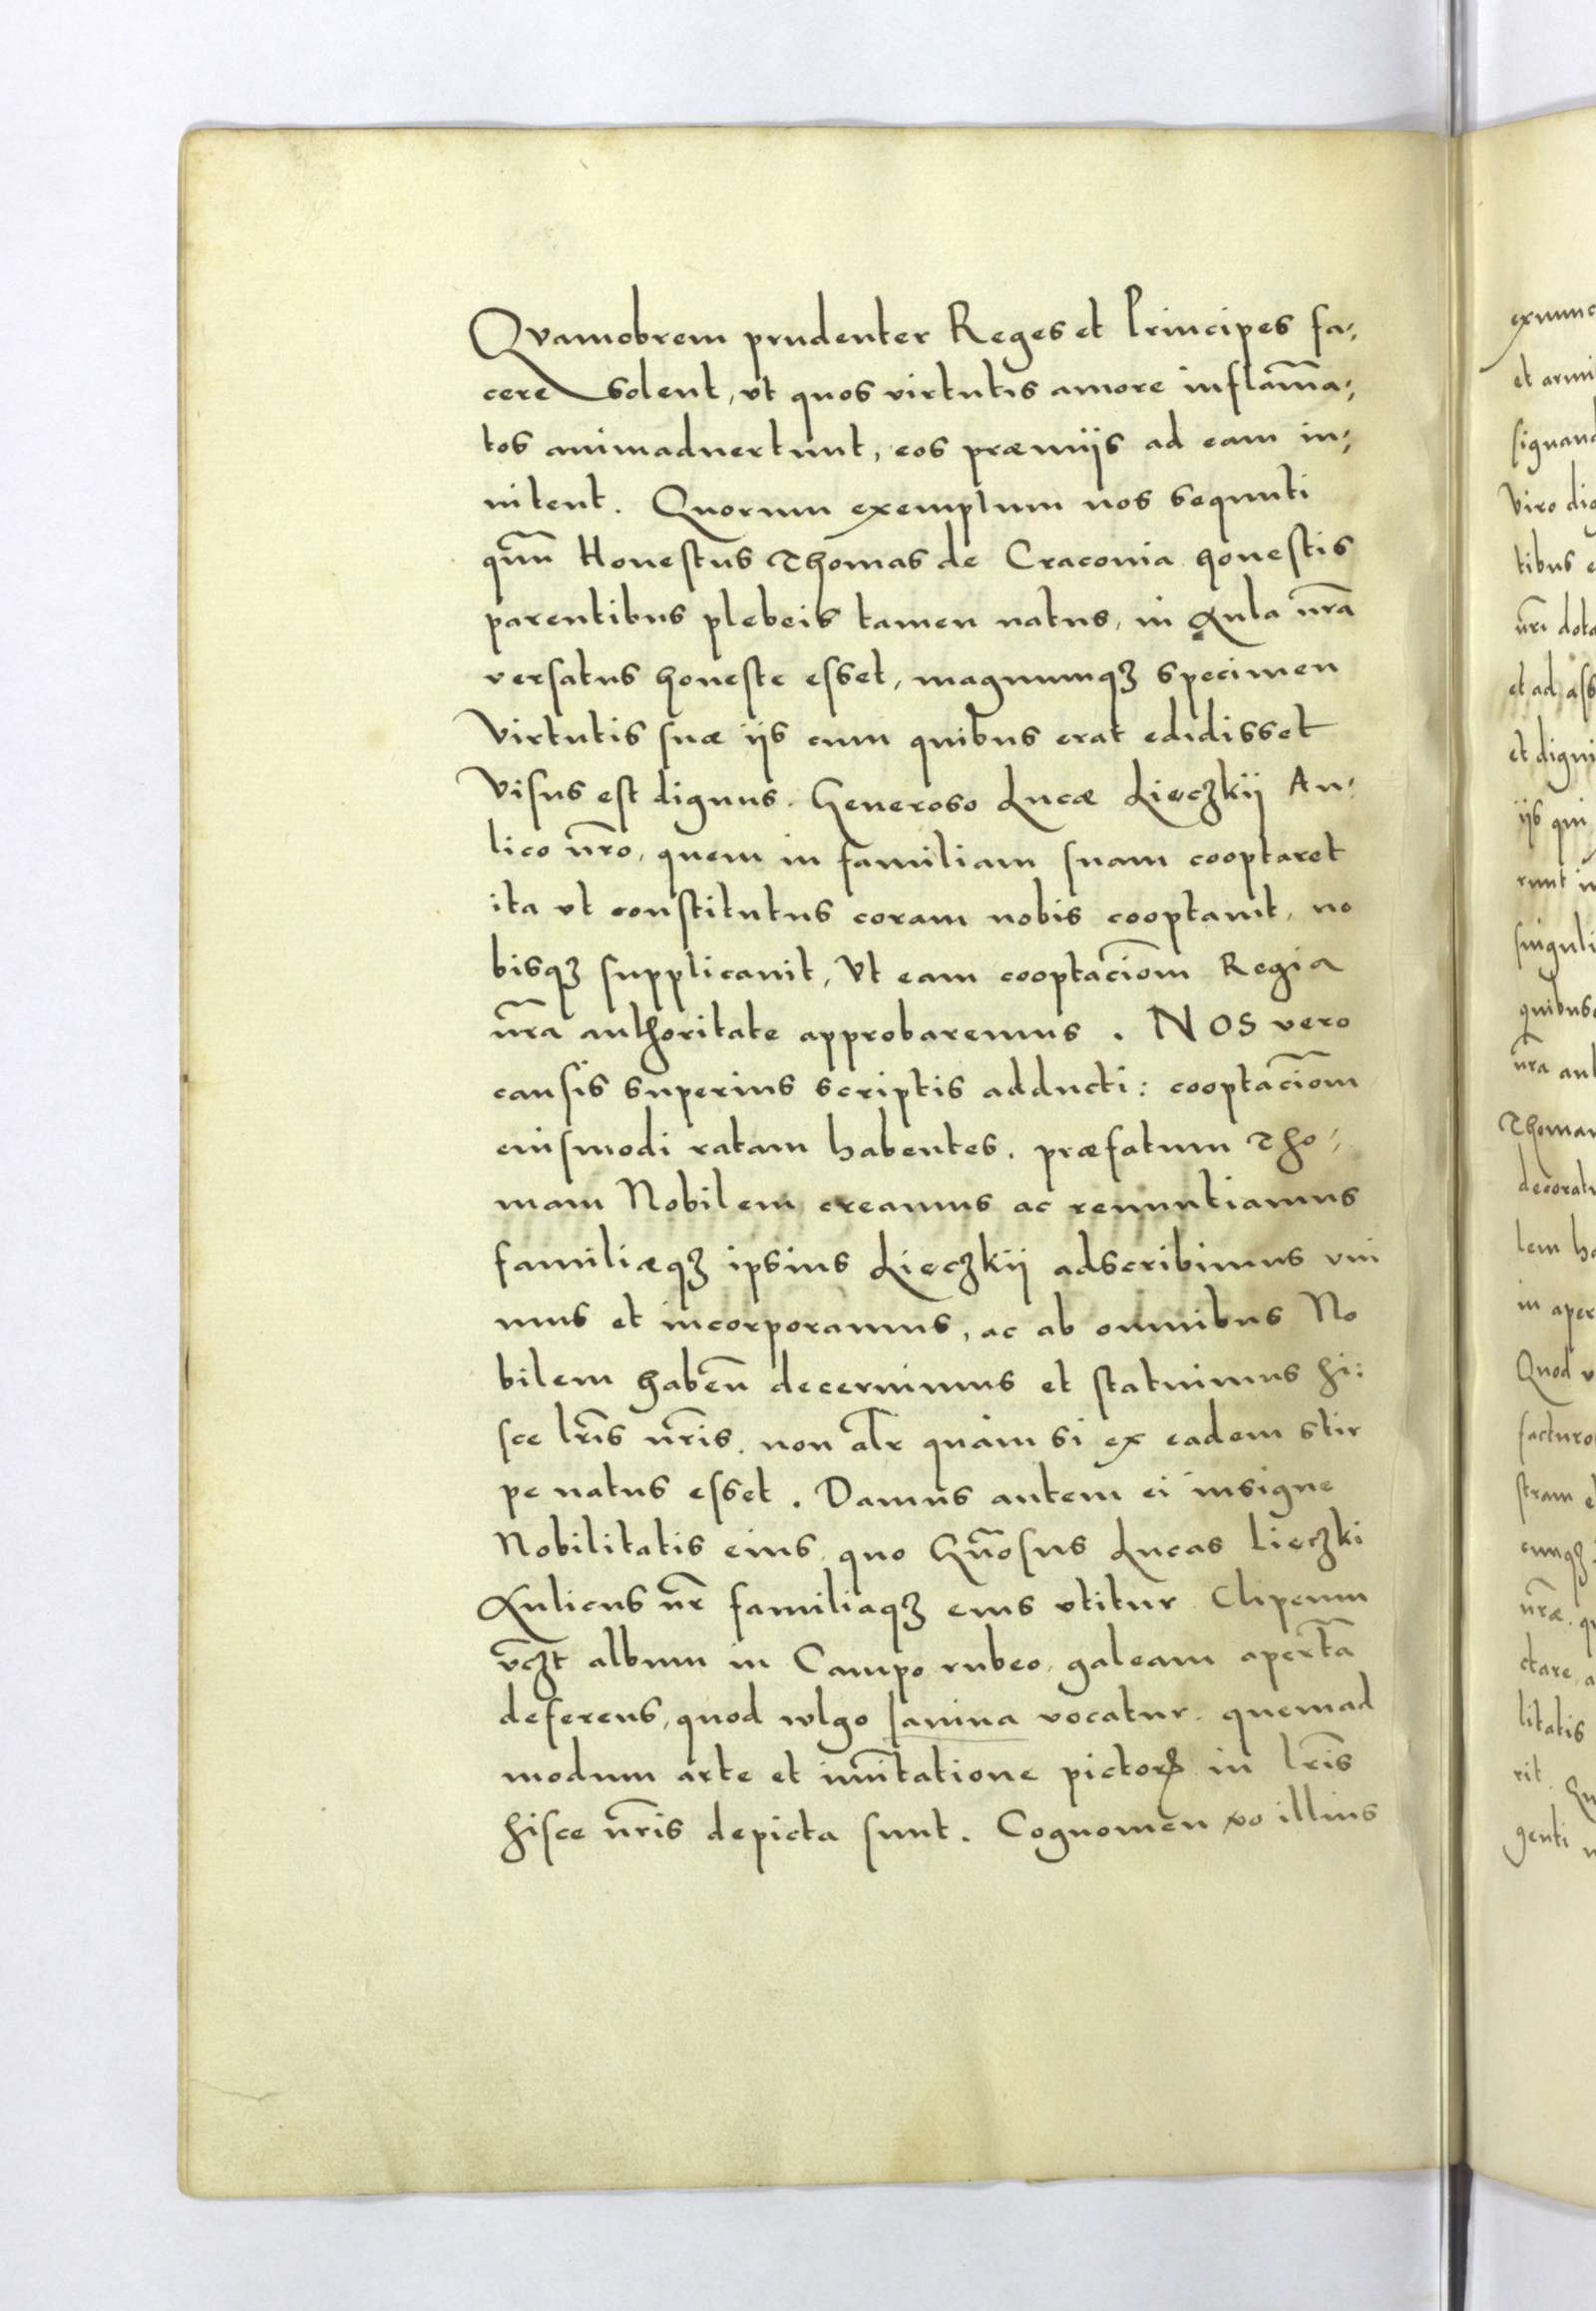 Qvamobrem prudenter Reges et Principes fa-
cere solent, vt quos virtutis amore inflam̃a-
tos animaduertunt, eos præmijs ad eam in-
uitent. Quorum exemplum nos sequuti
quũ Honestus Thomas de Craconia honestis
parentibus plebeis tamen natus, in Aula nr̃a
versatus honeste esset, magnumqꝫ specimen
virtutis suæ ijs cum quibus erat edidisset
visus est dignus. Generoso Lucæ Lieczkij Au-
lico nr̃o, quem in familiam suam cooptaret
ita vt constitutus coram nobis cooptauit, no
bisqꝫ supplicauit, Vt eam cooptac̃iom Regia
nr̃a authoritate approbaremus. NOS vero
causis superius scriptis adducti: cooptac̃iom
eiusmodi ratam habentes. præfatum Tho-
mam Nobilem creamus ac renuntiamus
familiæqꝫ ipsius Lieczkij adscribimus vni
mus et incorporamus, ac ab omnibus No
bilem habeñ decernimus et statuimus hi:
sce lr̃is nr̃is. non alr̃ quàm si ex eadem stir
pe natus esset. Damus autem ei insigne
Nobilitatis eius quo Gñosus Lucas Lieczki
Aulicus nr̃ familiaqꝫ eius vtitur. Clipeum
vc̃ꝫt album in Campo rubeo, galeam apert̃a
deferens, quod wlgo Janina vocatur. quemad
modum arte et imitatione pictorꝝ in lr̃is
hisce nr̃is depicta sunt. Cognomen vo illius